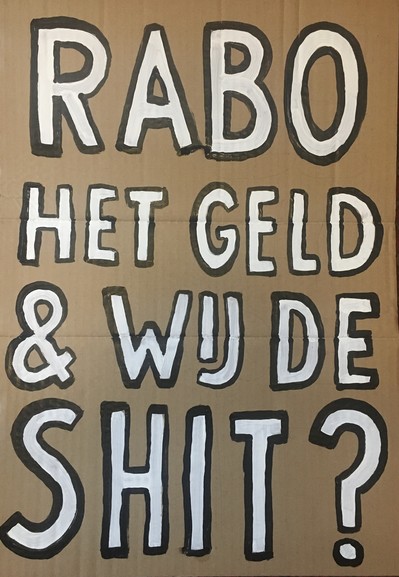 RABO
HET GELD
& WIJ DE
SHIT?